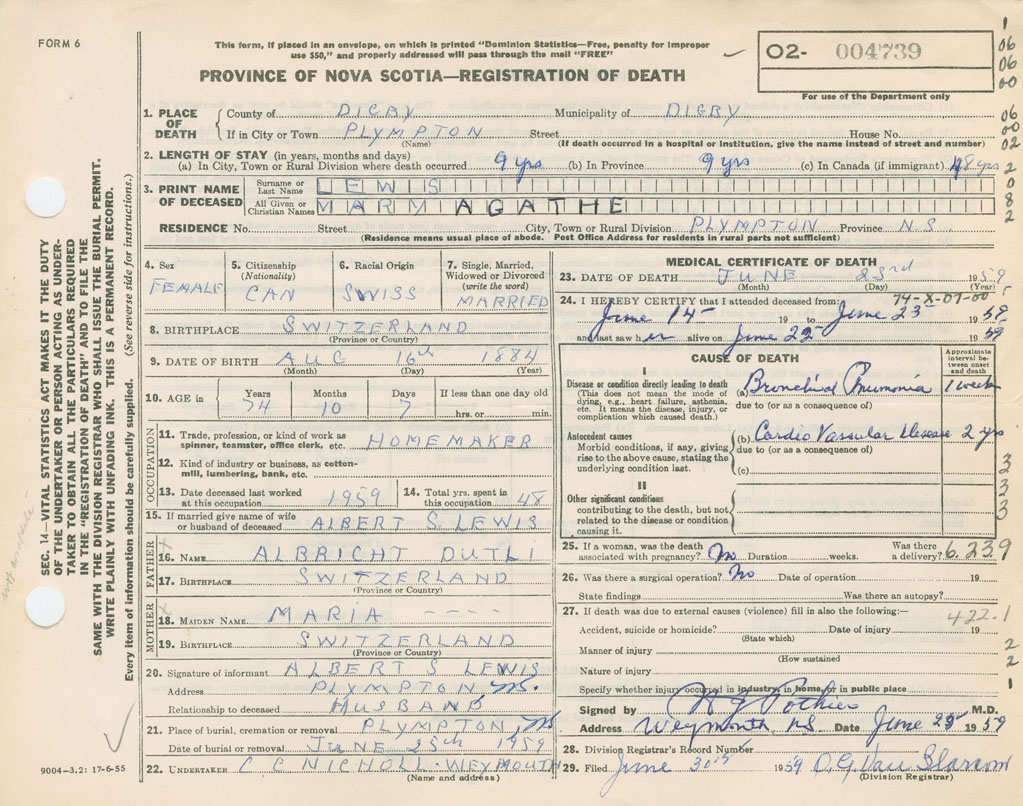 FORM 6
This form, if placed in an envelope, on which is printed "Dominion Statistics—Free, penalty for improper
use $50," and properly addressed will pass through the mail "FREE"
O2- 004739
PROVINCE OF NOVA SCOTIA—REGISTRATION OF DEATH
For use of the Department only
1. PLACE OF DEATH
County of DIGBY Municipality of DIGBY
If in City or Town PLYMPTON Street House No.
(Name) (If death occurred in a hospital or institution, give the name instead of street and number)
2. LENGTH OF STAY (in years, months and days)
(a) In City, Town or Rural Division where death occurred 9 yrs (b) In Province 9 yrs (c) In Canada (if immigrant) 48 yrs
3. PRINT NAME OF DECEASED
Surname or Last Name LEWIS
All Given or Christian Names MARM AGATHE
RESIDENCE No. Street City, Town or Rural Division PLYMPTON Province N.S.
(Residence means usual place of abode. Post Office Address for residents in rural parts not sufficient)
4. Sex FEMALE
5. Citizenship (Nationality) CAN
6. Racial Origin SWISS
7. Single, Married, Widowed or Divorced (write the word) MARRIED
8. BIRTHPLACE SWITZERLAND
(Province or Country)
9. DATE OF BIRTH AUG 16th 1884
(Month) (Day) (Year)
10. AGE in Years 74 Months 10 Days 7 If less than one day old hrs. or min.
OCCUPATION
11. Trade, profession, or kind of work as spinner, teamster, office clerk, etc. HOMEMAKER
12. Kind of industry or business, as cotton-mill, lumbering, bank, etc.
13. Date deceased last worked at this occupation 1959
14. Total yrs. spent in this occupation 48
15. If married give name of wife or husband of deceased ALBERT S. LEWIS
FATHER
16. NAME ALBRICHT DUTLI
17. BIRTHPLACE SWITZERLAND
(Province or Country)
MOTHER
18. MAIDEN NAME MARIA ----
19. BIRTHPLACE SWITZERLAND
(Province or Country)
20. Signature of informant ALBERT S LEWIS
Address PLYMPTON NS.
Relationship to deceased HUSBAND
21. Place of burial, cremation or removal PLYMPTON NS
Date of burial or removal JUNE 25th 1959
22. UNDERTAKER C C NICHOLL - WEYMOUTH
(Name and address)
MEDICAL CERTIFICATE OF DEATH
23. DATE OF DEATH JUNE 23rd 1959
(Month) (Day) (Year)
74-X-07-00
24. I HEREBY CERTIFY that I attended deceased from:
June 14 19 to June 23 1959
and last saw her alive on June 22 1959
CAUSE OF DEATH
Approximate interval between onset and death
I
Disease or condition directly leading to death
(This does not mean the mode of dying, e.g., heart failure, asthenia, etc. It means the disease, injury, or complication which caused death.)
(a) Bronchial Pnumonia 1 week
due to (or as a consequence of)
Antecedent causes
Morbid conditions, if any, giving rise to the above cause, stating the underlying condition last.
(b) Cardio Vascular disease 2 yrs
due to (or as a consequence of)
(c)
II
Other significant conditions
contributing to the death, but not related to the disease or condition causing it.
25. If a woman, was the death associated with pregnancy? No Duration weeks. Was there a delivery? 6.239
26. Was there a surgical operation? No Date of operation 19
State findings Was there an autopsy?
27. If death was due to external causes (violence) fill in also the following:—
422.1
Accident, suicide or homicide? Date of injury 19
(State which)
Manner of injury
(How sustained
Nature of injury
Specify whether injury occurred in industry, in home, or in public place
Signed by Pothier M.D.
Address Weymouth NS Date June 23 1959
28. Division Registrar's Record Number
29. Filed June 30th 1959
(Division Registrar)
SEC. 14—VITAL STATISTICS ACT MAKES IT THE DUTY
OF THE UNDERTAKER OR PERSON ACTING AS UNDER-
TAKER TO OBTAIN ALL THE PARTICULARS REQUIRED
IN THE "REGISTRATION OF DEATH" AND TO FILE THE
SAME WITH THE DIVISION REGISTRAR WHO SHALL ISSUE THE BURIAL PERMIT.
WRITE PLAINLY WITH UNFADING INK. THIS IS A PERMANENT RECORD.
Every item of information should be carefully supplied. (See reverse side for instructions.)
9004-3.2: 17-6-55
1
06
06
00
06
00
02
2
0
8
2
3
3
3
3
2
2
1